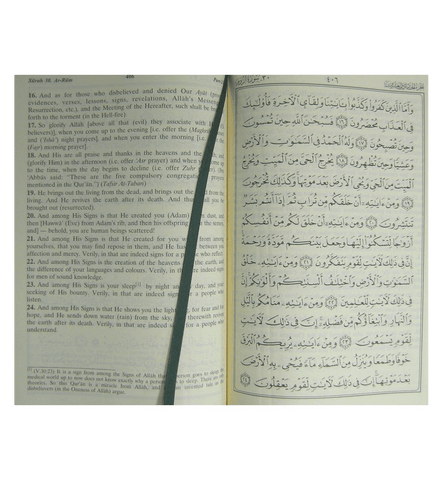 Sûrah 30. Ar-Rûm
16. And as for those who disbelieved and denied Our Ayât (proofs,
evidences, verses, lessons, signs, revelations, Allâh's Messengers,
Resurrection, etc.), and the Meeting of the Hereafter, such shall be
forth to the torment (in the Hell-fire)
17. So glorify Allâh [above all that (evil) they associate with
believers)], when you come up to the evening [i.e. offer the (Maghrib)
and ('Ishâ') night prayers], and when you enter the morning [i.e.
(Fajr) morning prayer].
18. And His are all praise and thanks in the heavens and the earth, and
(glorify Him) in the afternoon (i.e. offer 'Asr prayer) and when
to the time, when the day begins to decline (i.e. offer Zuhr prayer). (Ibn
'Abbâs said: "These are the five compulsory congregational prayers
mentioned in the Qur'ân.") (Tafsir At-Tabari)
19. He brings out the living from the dead, and brings out the dead from the
living. And He revives the earth after its death. And thus shall you be
brought out (resurrected).
20. And among His Signs is that He created you (Adam) from dust, and
then [Hawwa' (Eve) from Adam's rib, and then his offspring from the semen,
and] — behold, you are human beings scattered!
21. And among His Signs is that He created for you wives from among
yourselves, that you may find repose in them, and He has put between you
affection and mercy. Verily, in that are indeed signs for a people who reflect.
22. And among His Signs is the creation of the heavens and the earth, and
the difference of your languages and colours. Verily, in that are indeed signs
for men of sound knowledge.
23. And among His Signs is your sleep by night and by day, and your
seeking of His Bounty. Verily, in that are indeed signs for a people who
listen.
24. And among His Signs is that He shows you the lightning, for fear and for
hope, and He sends down water (rain) from the sky, and therewith revives
the earth after its death. Verily, in that are indeed signs for a people who
understand.
٤٠٦
وَأَمَّا الَّذِينَ كَفَرُوا وَكَذَّبُوا بِآيَاتِنَا وَلِقَاءِ الْآخِرَةِ فَأُولَٰئِكَ
فِي الْعَذَابِ مُحْضَرُونَ ١٦ فَسُبْحَانَ اللَّهِ حِينَ تُمْسُونَ
وَحِينَ تُصْبِحُونَ ١٧ وَلَهُ الْحَمْدُ فِي السَّمَاوَاتِ وَالْأَرْضِ
وَعَشِيًّا وَحِينَ تُظْهِرُونَ ١٨ يُخْرِجُ الْحَيَّ مِنَ الْمَيِّتِ وَيُخْرِجُ
الْمَيِّتَ مِنَ الْحَيِّ وَيُحْيِي الْأَرْضَ بَعْدَ مَوْتِهَا وَكَذَٰلِكَ تُخْرَجُونَ
١٩ وَمِنْ آيَاتِهِ أَنْ خَلَقَكُم مِّن تُرَابٍ ثُمَّ إِذَا أَنتُم بَشَرٌ
تَنتَشِرُونَ ٢٠ وَمِنْ آيَاتِهِ أَنْ خَلَقَ لَكُم مِّنْ أَنفُسِكُمْ
أَزْوَاجًا لِّتَسْكُنُوا إِلَيْهَا وَجَعَلَ بَيْنَكُم مَّوَدَّةً وَرَحْمَةً
إِنَّ فِي ذَٰلِكَ لَآيَاتٍ لِّقَوْمٍ يَتَفَكَّرُونَ ٢١ وَمِنْ آيَاتِهِ خَلْقُ
السَّمَاوَاتِ وَالْأَرْضِ وَاخْتِلَافُ أَلْسِنَتِكُمْ وَأَلْوَانِكُمْ إِنَّ
فِي ذَٰلِكَ لَآيَاتٍ لِّلْعَالِمِينَ ٢٢ وَمِنْ آيَاتِهِ مَنَامُكُم بِاللَّيْلِ
وَالنَّهَارِ وَابْتِغَاؤُكُم مِّن فَضْلِهِ إِنَّ فِي ذَٰلِكَ لَآيَاتٍ
لِّقَوْمٍ يَسْمَعُونَ ٢٣ وَمِنْ آيَاتِهِ يُرِيكُمُ الْبَرْقَ
خَوْفًا وَطَمَعًا وَيُنَزِّلُ مِنَ السَّمَاءِ مَاءً فَيُحْيِي بِهِ الْأَرْضَ
بَعْدَ مَوْتِهَا إِنَّ فِي ذَٰلِكَ لَآيَاتٍ لِّقَوْمٍ يَعْقِلُونَ ٢٤